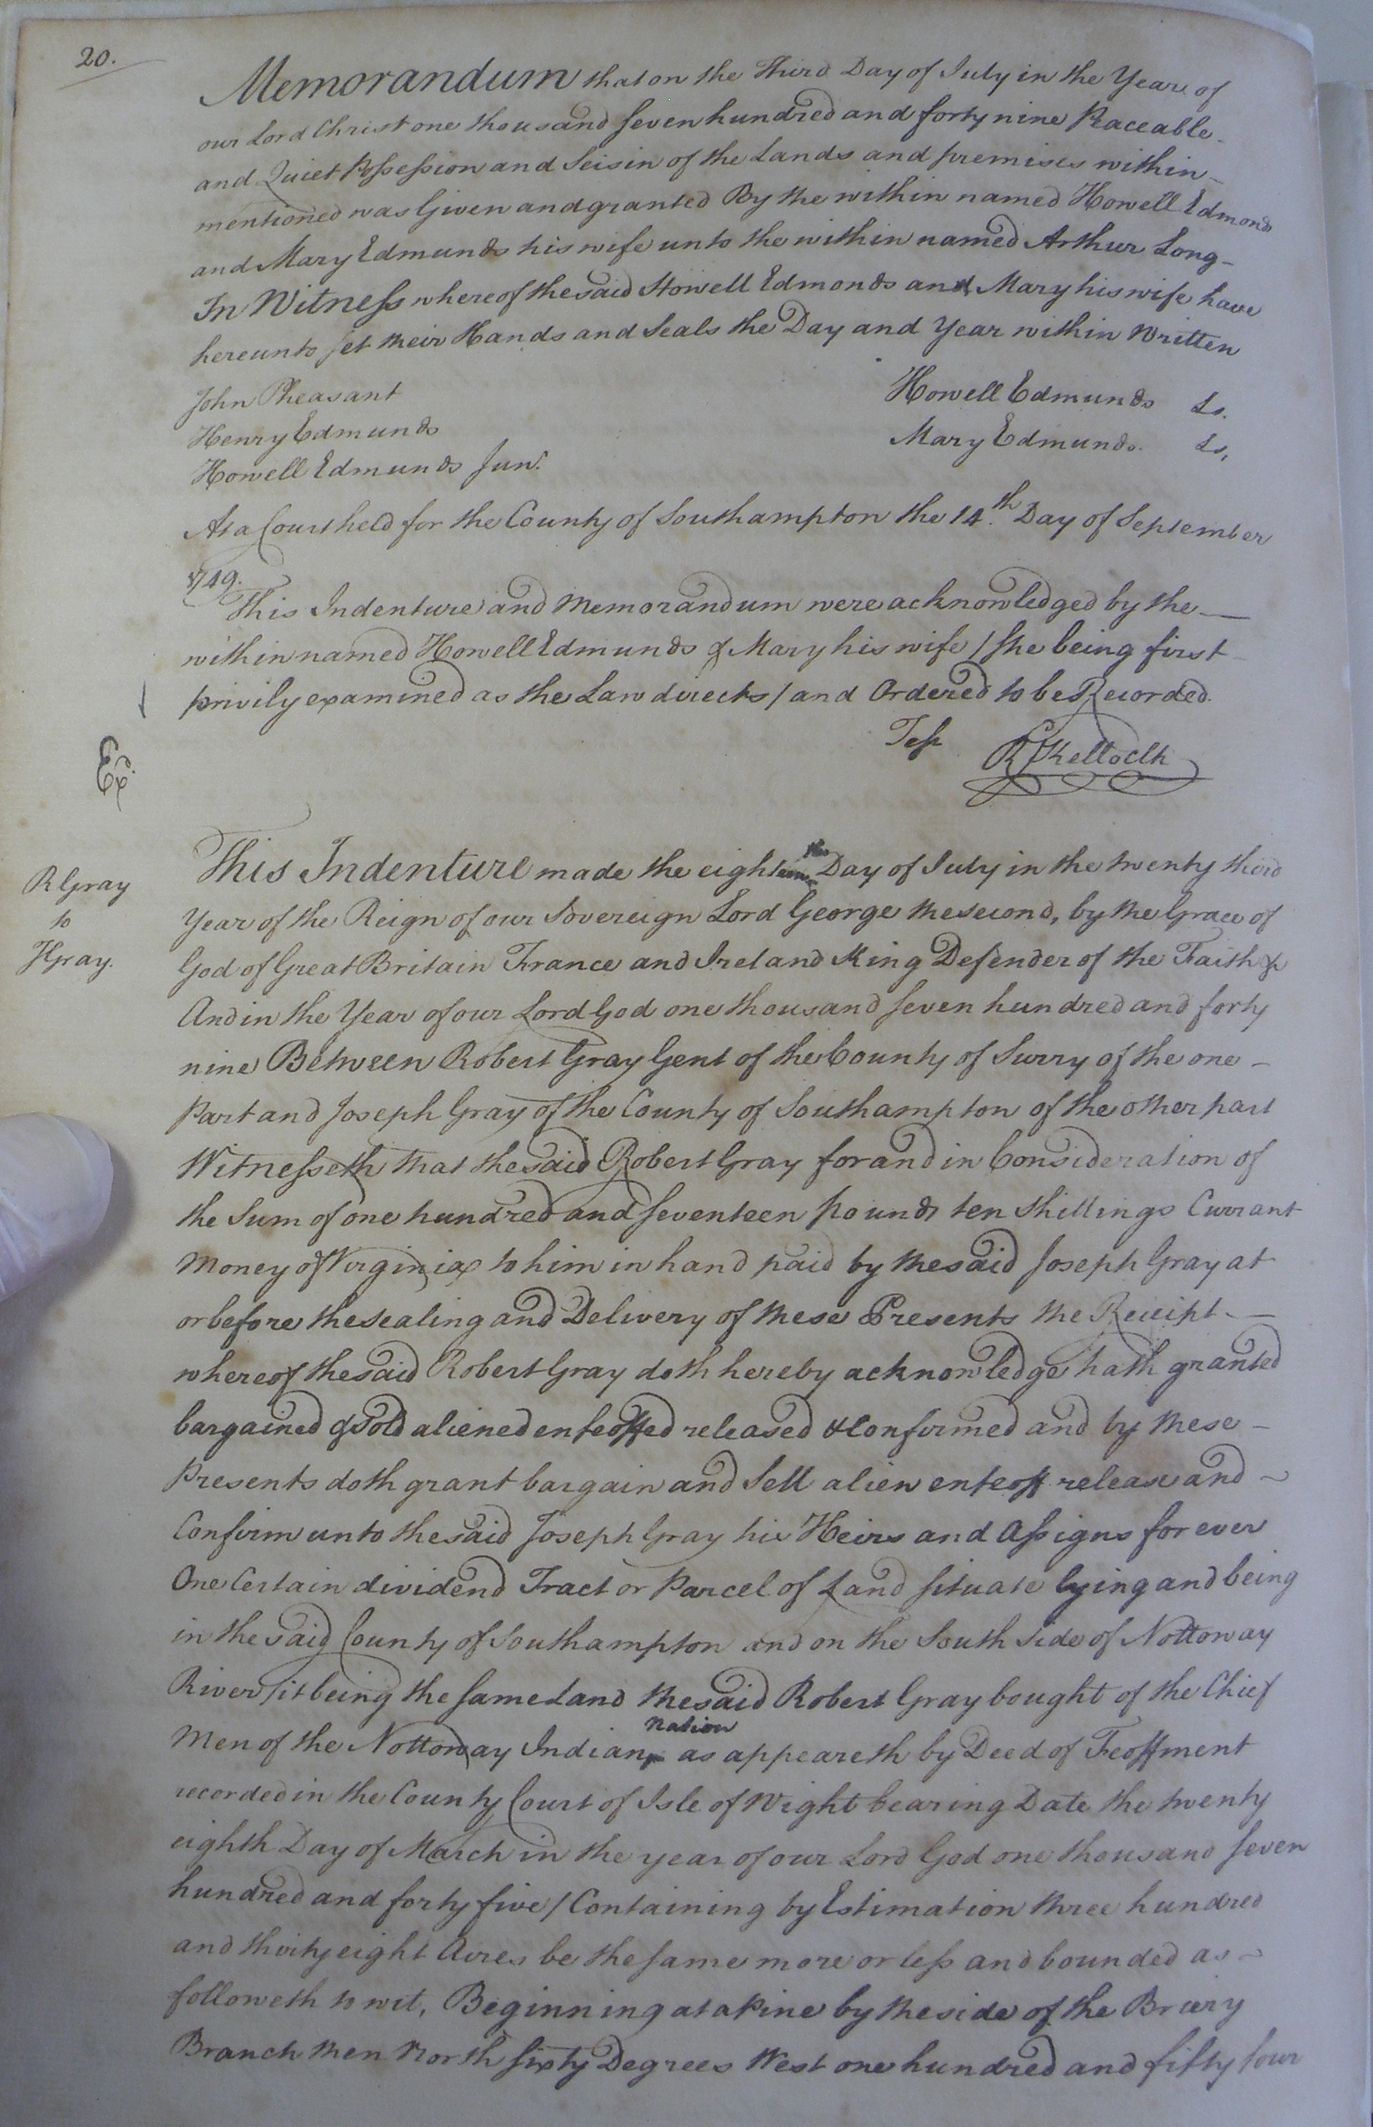 20.
Memorandum that on the Third Day of July in the Year of
our Lord Christ one thousand seven hundred and forty nine Peaceable
and Quiet Possession and Seisin of the Lands and premises within
mentioned was Given and granted By the within named Howell Edmonds
and Mary Edmunds his wife unto the within named Arthur Long
In Witness whereof the said Howell Edmonds and Mary his wife have
hereunto set their Hands and Seals the Day and Year within Written
John Pheasant Howell Edmunds Ls.
Henry Edmunds Mary Edmunds. Ls,
Howell Edmunds Junr.
At a Court held for the County of Southampton the 14.th Day of September
1749.
This Indenture and Memorandum were acknowledged by the
within named Howell Edmunds & Mary his wife / she being first
privily examined as the Law directs / and Ordered to be Recorded.
Ex.
Test
R Gray
to
J Gray.
This Indenture made the eighth Day of July in the twenty third
Year of the Reign of our Sovereign Lord George the second, by the Grace of
God of Great Britain France and Ireland King Defender of the Faith &
And in the Year of our Lord God one thousand seven hundred and forty
nine Between Robert Gray Gent of the County of Surry of the one
Part and Joseph Gray of the County of Southampton of the other part
Witnesseth that the said Robert Gray for and in Consideration of
the Sum of one hundred and seventeen pounds ten Shillings Currant
Money of Virginia to him in hand paid by the said Joseph Gray at
or before the sealing and Delivery of these Presents the Receipt
whereof the said Robert Gray doth hereby acknowledge hath granted
bargained & Sold aliened enfeoffed released & Confirmed and by these
Presents doth grant bargain and Sell alien enfeoff release and
Confirm unto the said Joseph Gray his Heirs and Assigns for ever
One Certain dividend Tract or Parcel of Land situate lying and being
in the said County of Southampton and on the South side of Nottoway
River / it being the same Land the said Robert Gray bought of the Chief
Men of the Nottoway Indian nation as appeareth by Deed of Feoffment
recorded in the County Court of Isle of Wight bearing Date the twenty
eighth Day of March in the year of our Lord God one thousand seven
hundred and forty five / Containing by Estimation three hundred
and thirty eight Acres be the same more or less and bounded as
followeth to wit, Beginning at a Pine by the side of the Briery
Branch then North sixty Degrees West one hundred and fifty four